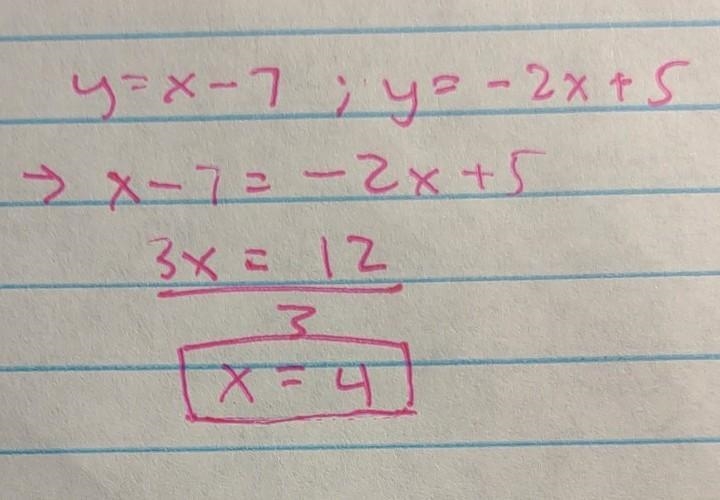 y=x-7 ; y= -2x+5
→ x-7= -2x+5
3x = 12
3
x = 4